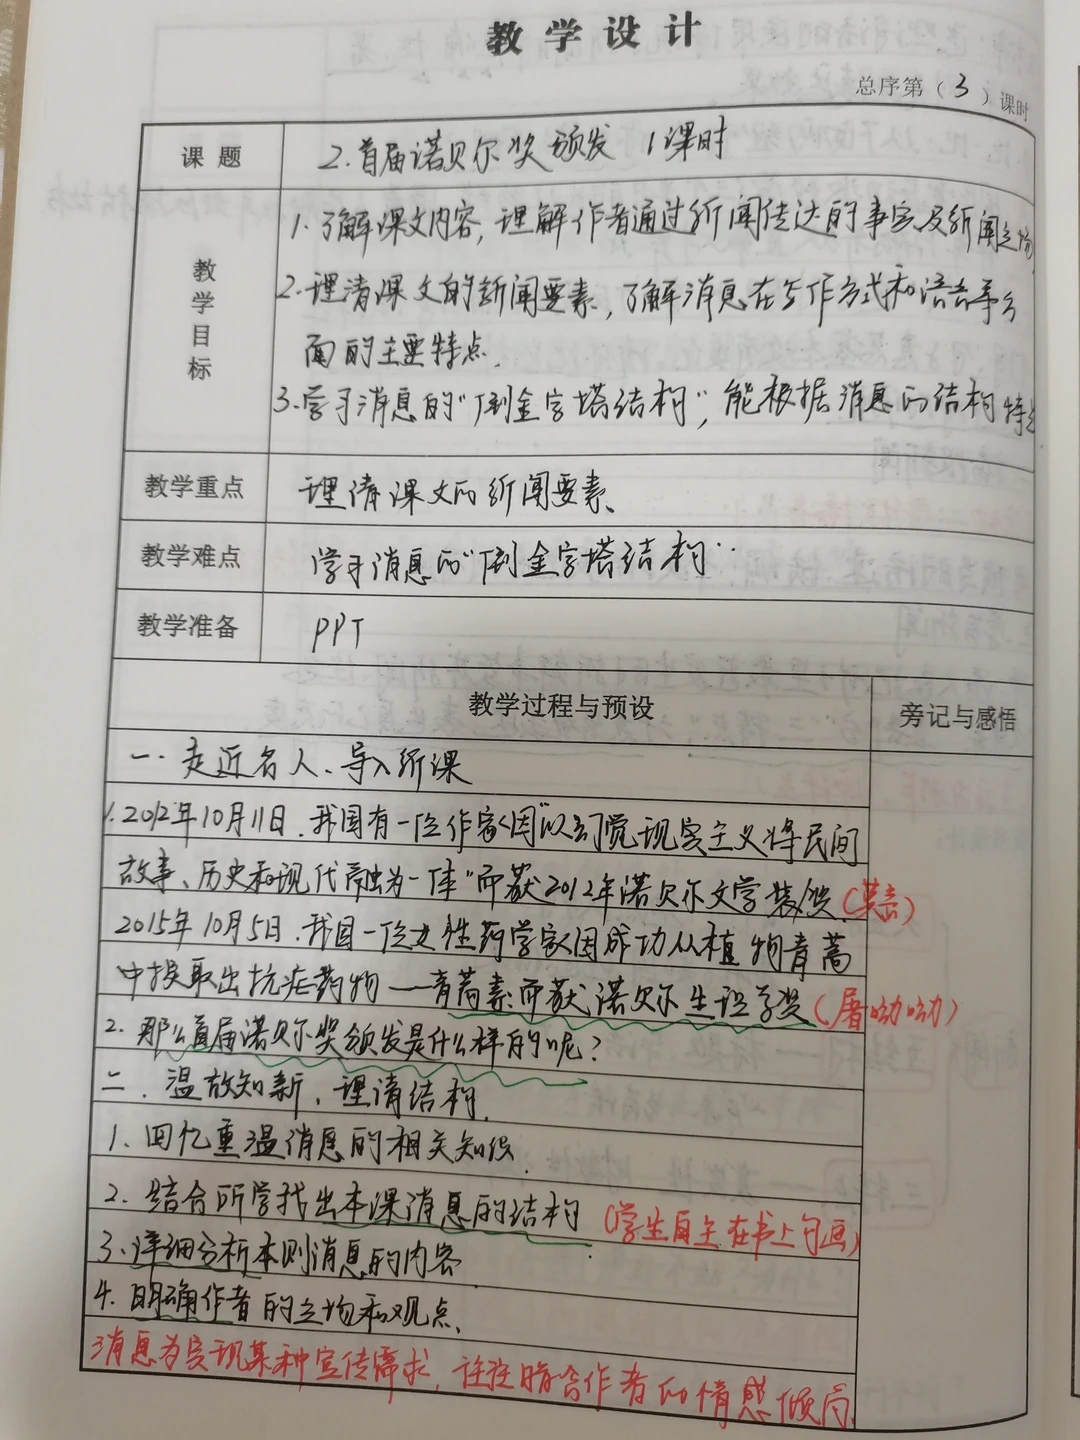 教学设计
总序第（3）课时
课题 2.首届诺贝尔奖颁发 1课时
教学目标
1.了解课文内容，理解作者通过新闻传达的事实及新闻立场
2.理清课文的新闻要素，了解消息在写作方式和语言等方
面的主要特点.
3.学习消息的"倒金字塔结构"，能根据消息的结构特
教学重点 理清课文的新闻要素、
教学难点 学习消息的"倒金字塔结构"
教学准备 PPT
教学过程与预设 旁记与感悟
一．走近名人、导入新课
1.2012年10月11日．我国有一位作家因"以幻觉现实主义将民间
故事、历史和现代融为一体"而获2012年诺贝尔文学奖(莫言)
2015年10月5日．我国一位女性药学家因成功从植物青蒿
中提取出抗疟药物——青蒿素而获诺贝尔生理学奖(屠呦呦)
2.那么首届诺贝尔奖颁发是什么样的呢？
二．温故知新，理清结构.
1、回忆重温消息的相关知识.
2.结合所学找出本课消息的结构 (学生自主在书上勾画)
3.详细分析本则消息的内容
4.明确作者的立场和观点、
消息为实现某种宣传需求，往往暗含作者的情感倾向.